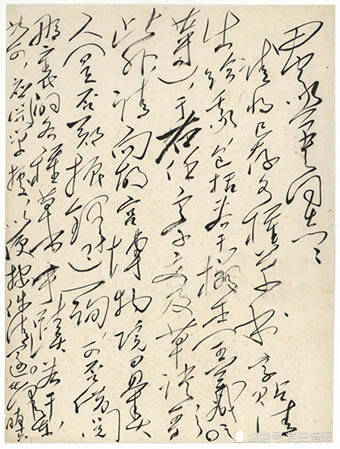 田家英同志：
请将已存各种草书字帖清
出给我，包括若干拓本（王羲之
等），于右任千字文及草诀百
此外，请向故宫博物院负责
人（是否郑振铎？）一询，可否借阅
那里的各种草书手迹若干，如
可，应开单据，以便按件清还。